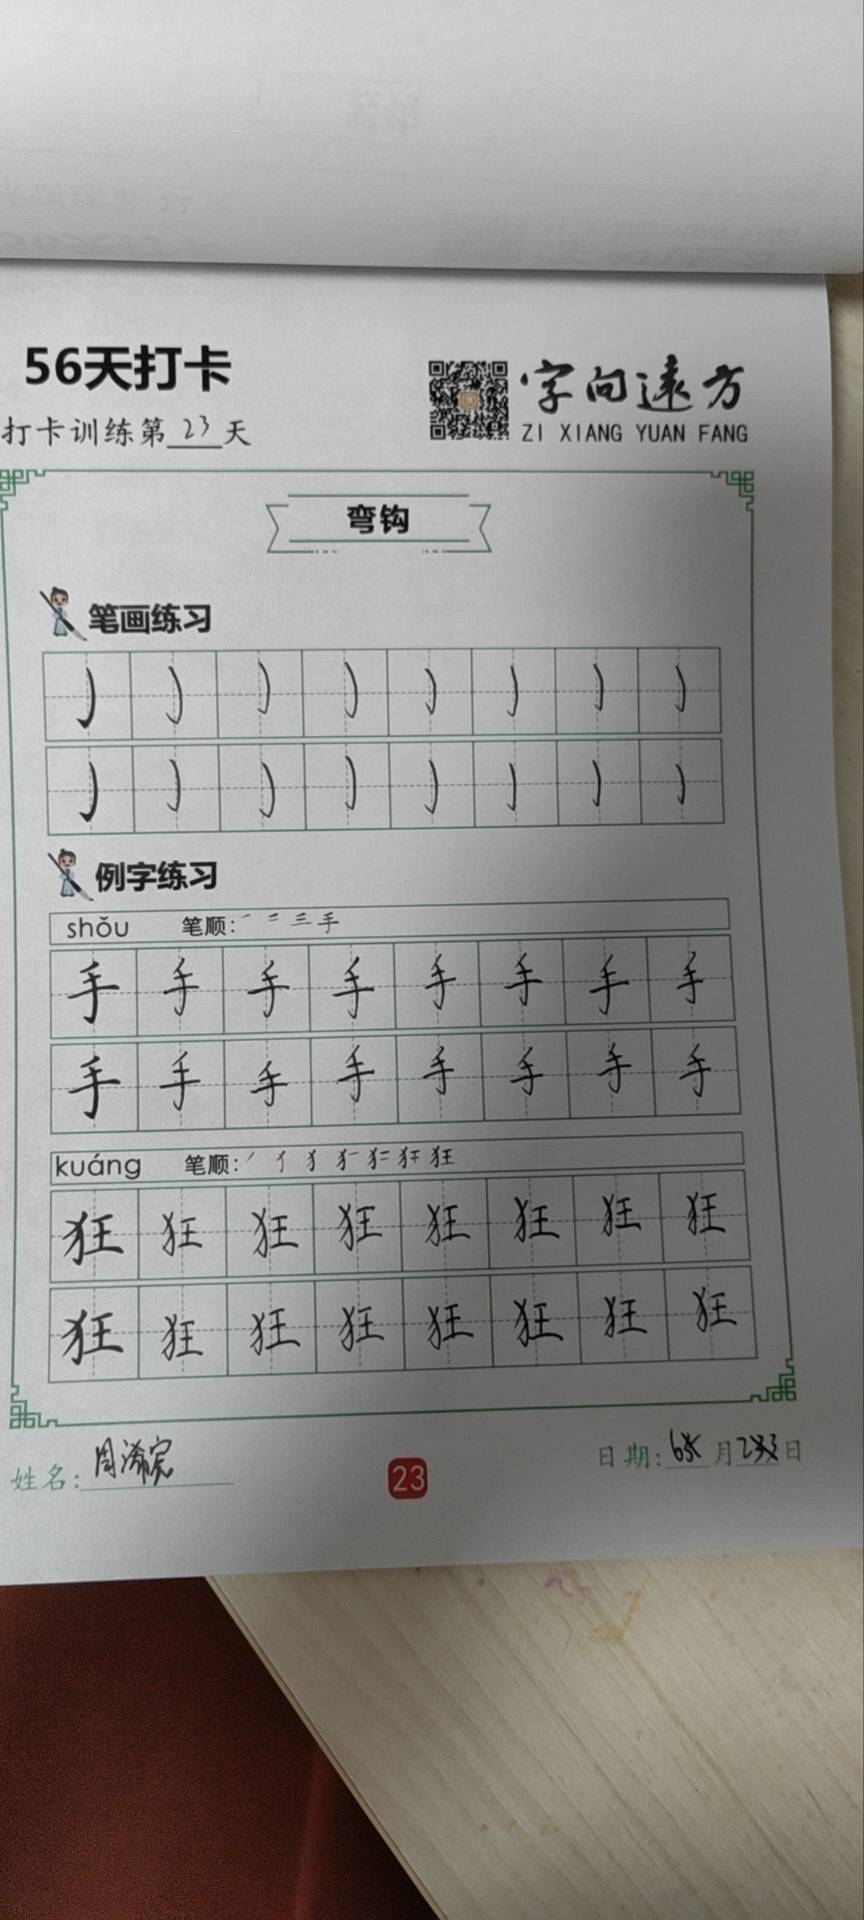 56天打卡
字向远方
打卡训练第23天
ZI XIANG YUAN FANG
弯钩
笔画练习
例字练习
shǒu 笔顺: 一 二 三 手
手 手 手 手 手 手 手 手
手 手 手 手 手 手 手 手
kuáng 笔顺: 狂
狂 狂 狂 狂 狂 狂 狂 狂
狂 狂 狂 狂 狂 狂 狂 狂
姓名: 周
23
日期: 月 日